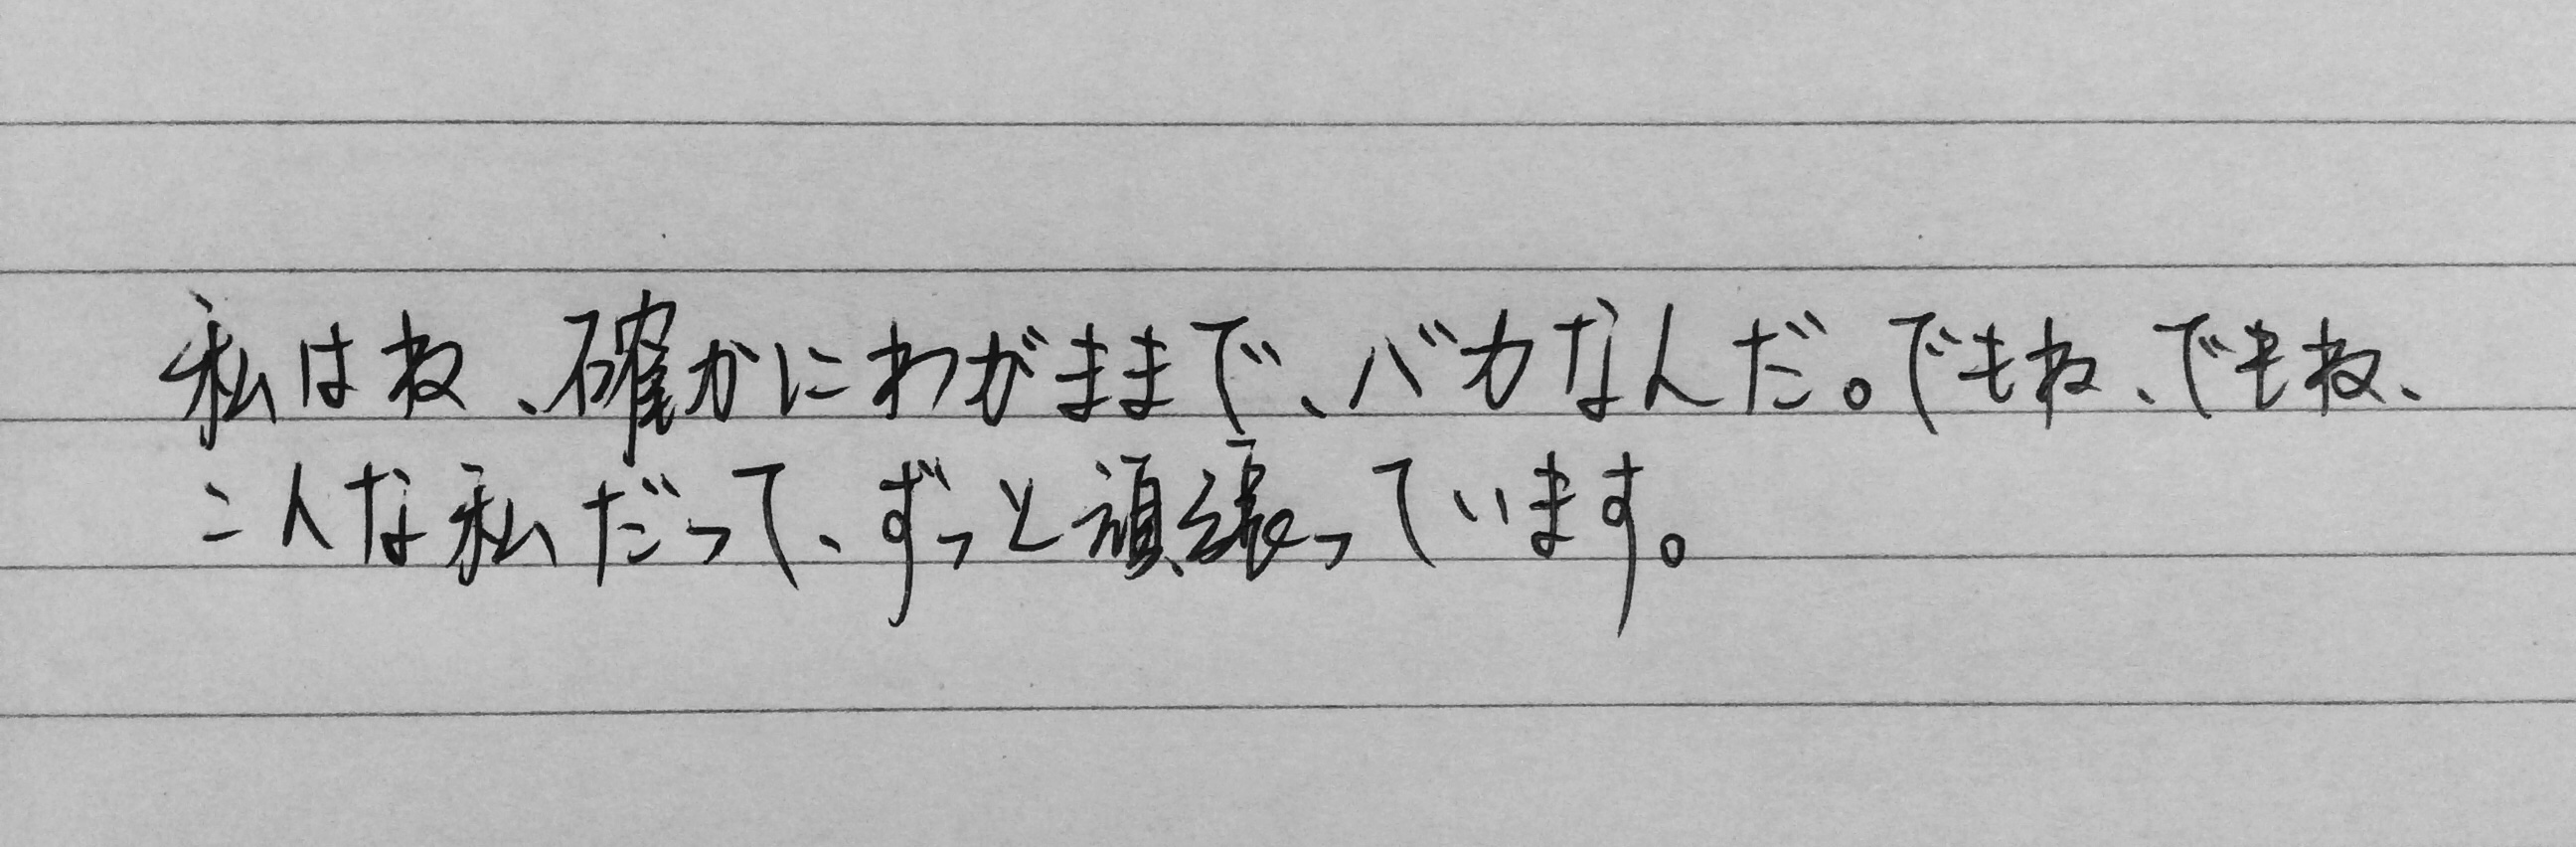 私はね、確かにわがままで、バカなんだ。でもね、でもね、
こんな私だって、ずっと頑張っています。